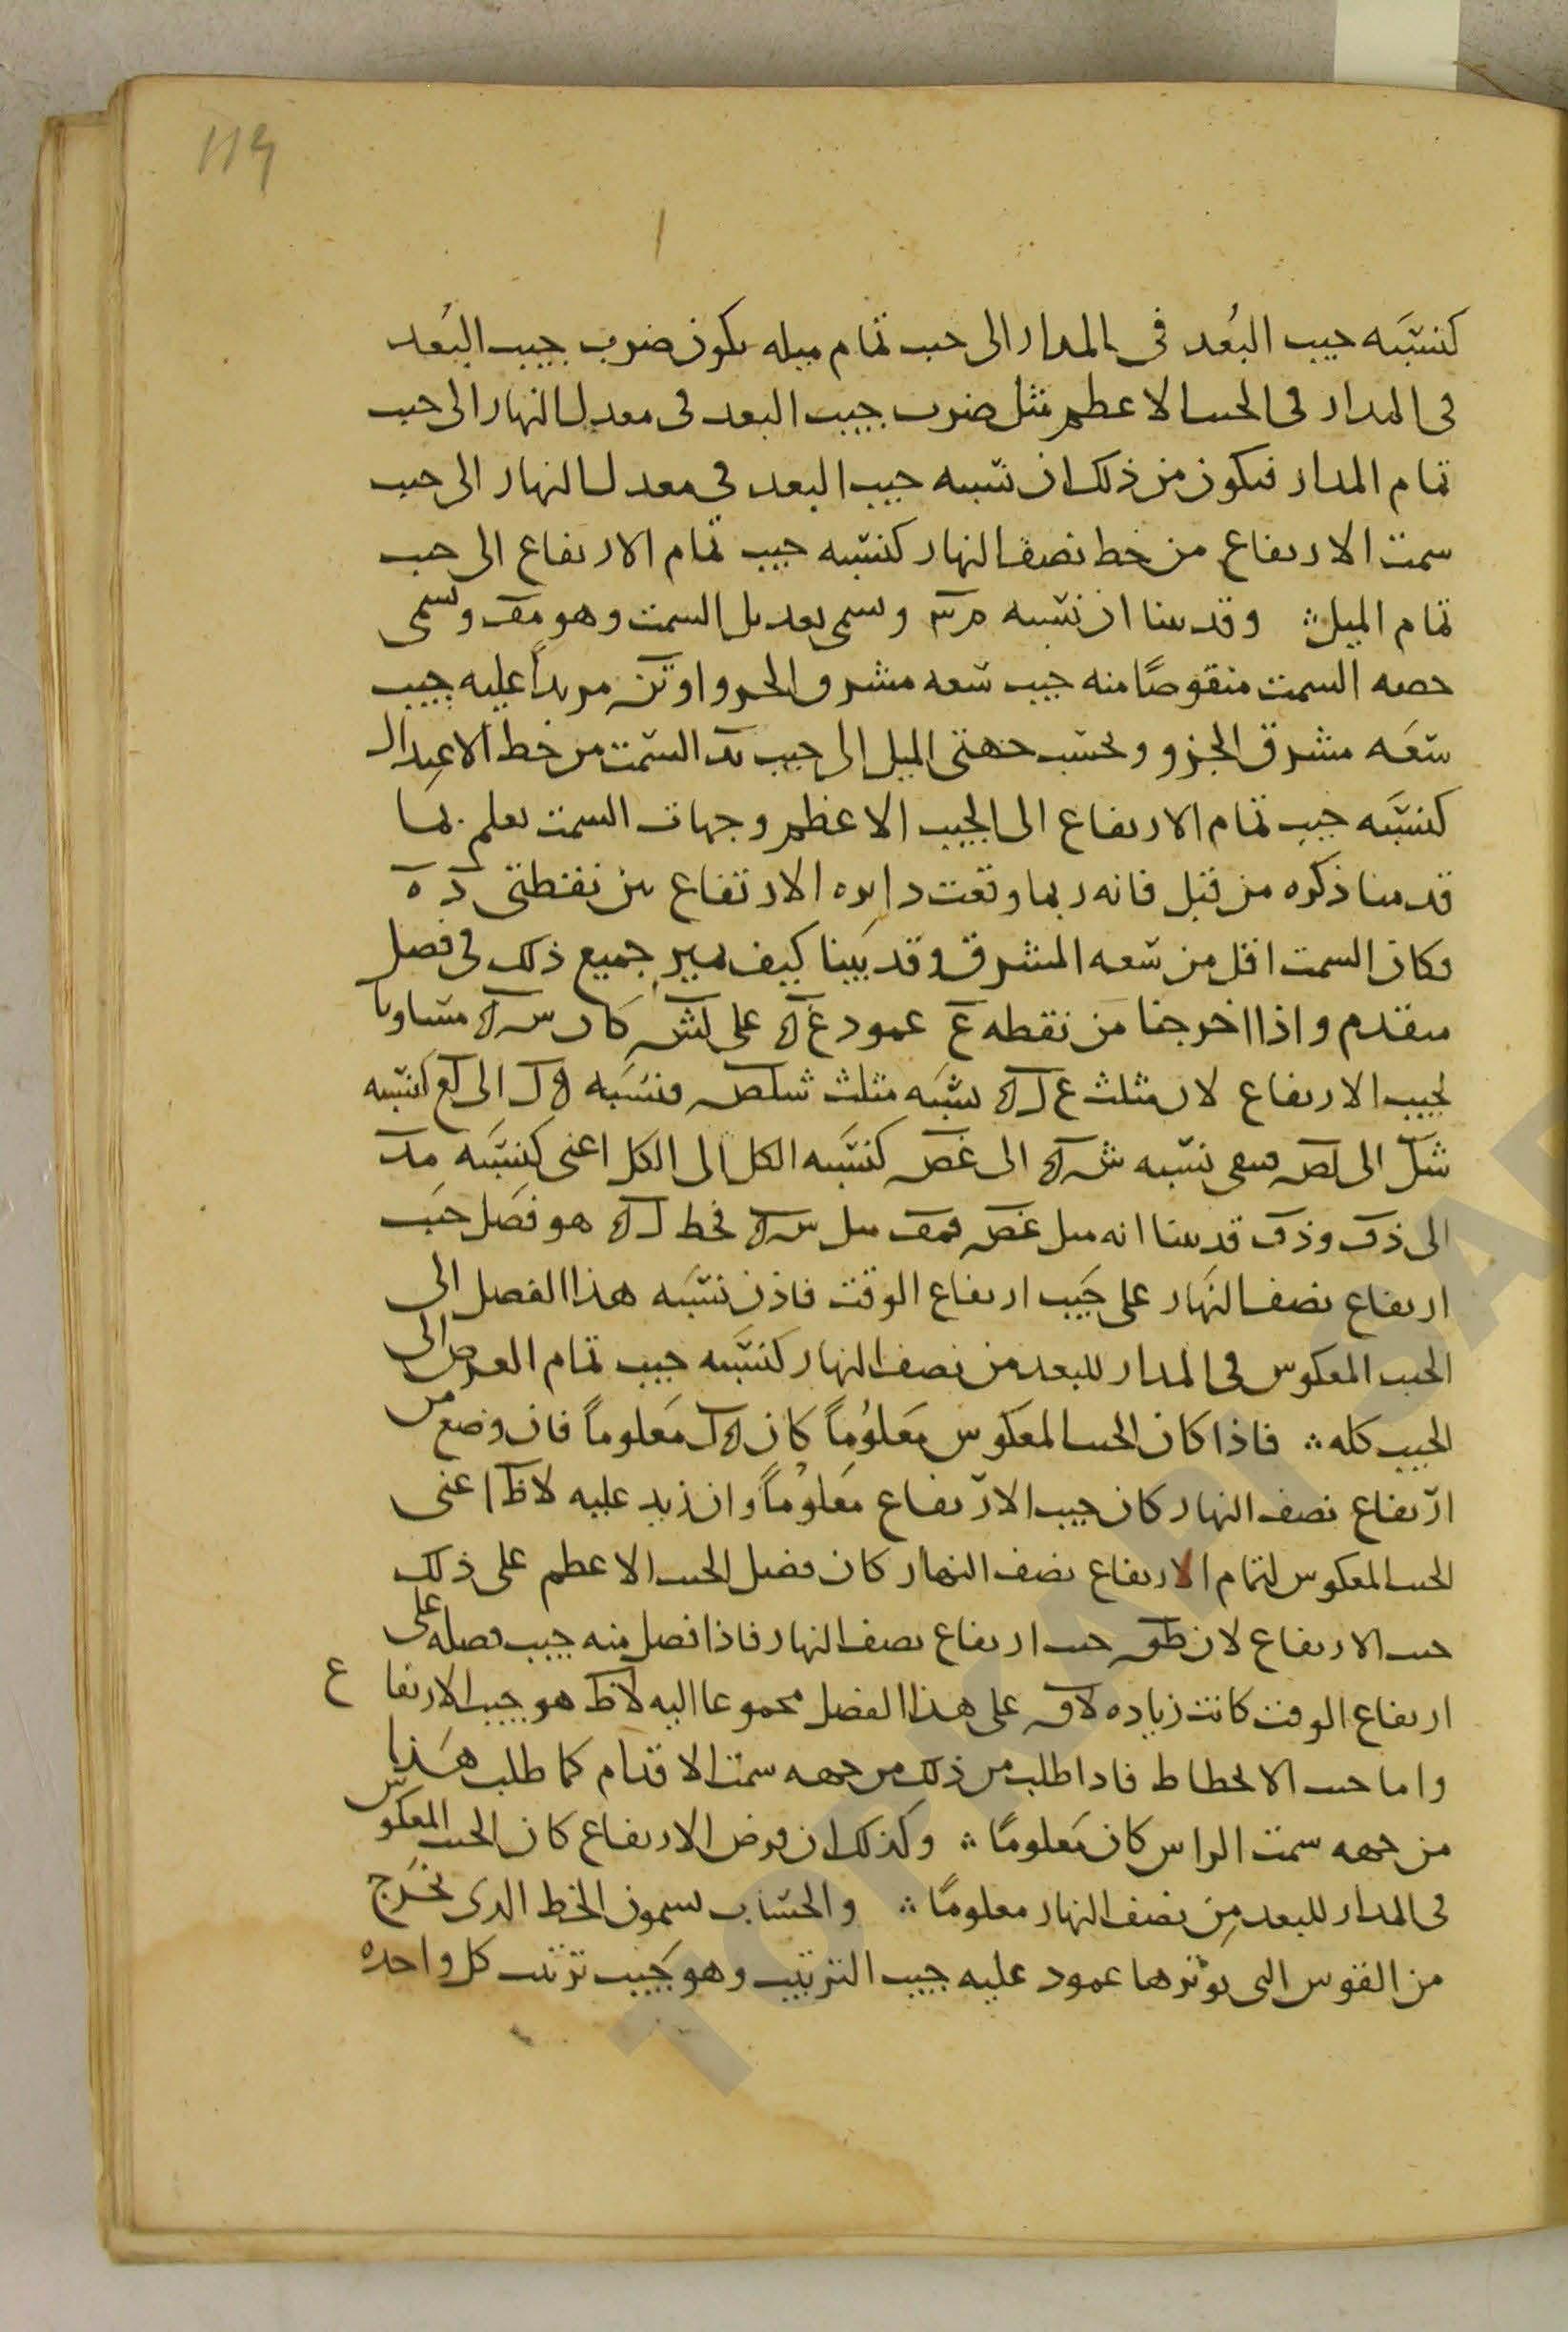 119
كنسبَه جيب البُعد فى المدار الى جيب تمام ميله يكون ضرب جيب البُعد
فى المدار فى الجيب الاعظم مثل ضرب جيب البعد فى معدل النهار الى جيب
تمام المدار فيكون من ذلك ان نسبه جيب البعد فى معدل النهار الى جيب
سمت الارتفاع من خط نصف النهار كنسبه جيب تمام الارتفاع الى جيب
تمام الميل ∴ وقد بينا ان نسبه وسمى تعديل السمت وهو مف وسمى
حصه السمت منقوصًا منه جيب سعه مشرق الجزو او مزيداً عليه جيب
سعَه مشرق الجزو وبحسب جهتى الميل الى جيب بُعد السمت من خط الاعتدال
كنسبَه جيب تمام الارتفاع الى الجيب الاعظم وجهات السمت تعلم بما
قدمنا ذكره من قبل فانه ربما وقعت دايره الارتفاع بين نقطتى د ه
فكان السمت اقل من سعه المشرق وقد بَينا كيف جميع ذلك فى فصل
متقدم واذا اخرجنا من نقطه ع عمود على كان مساويا
لجيب الارتفاع لان مثلث يشبَه مثلث شلص فنسَبه الى كنسبه
شل الى لص نسبه الى غص كنسَبه الكل الى الكل اعنى كنسَبَه
الى ذف وذف قد بينا انه مثل غص فخط هو فضل جَيب
ارتفاع نصف النَهار على جَيب ارتفاع الوقت فاذن نسبَه هذا الفصل الى
الجيب المعكوس فى المدار للبعد من نصف النهار كنسَبه جيب تمام العرض الى
الجيب كله ∴ فاذا كان الجيب المعكوس مَعلوُماً كان مَعلوماً فان وضع من
ارتفاع نصف النهار كان جيب الارتفاع مَعلوُماً وان زيد عليه لاظ اعنى
الجيب المعكوس لتمام الارتفاع نصف النهار كان فضل الجيب الاعظم على ذلك
جيب الارتفاع لان طق جيب ارتفاع نصف النهار فاذا فصل منه جيب فصله على
ارتفاع الوقت كانت زياده لاق على هذا الفضل مجموعا اليه لاظ هو جيب الارتفاع
واما جيب الانحطاط فاذا طلب من ذلك من جهه سمت الاقدام كما طلب هَذا
من جهه سمت الراس كان مَعلومًا ∴ وكذلك ان فرض الارتفاع كان الجيب المعكوس
فى المدار للبعد مِن نصف النهار معلومًا ∴ والحسّاب يسمون الخط الذى يخَرج
من القوس التى يوترها عمود عليه جيب الترتيب وهو جَيب ترتيب كل واحده